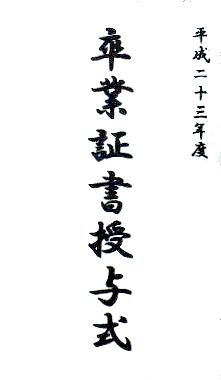 平成二十三年度
卒業証書授与式